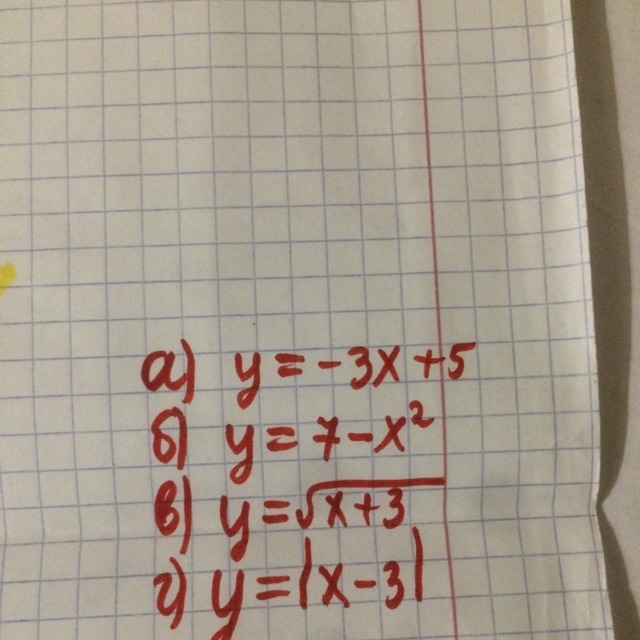 а) y = -3x + 5
б) y = 7 - x²
в) y = √(x+3)
г) y = |x - 3|